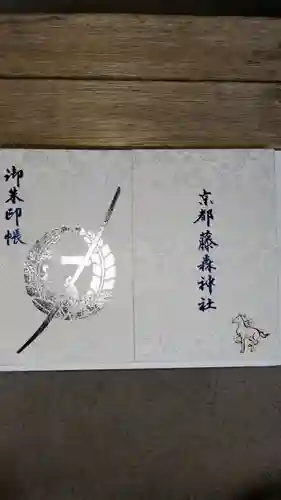 京都藤森神社
御朱印帳